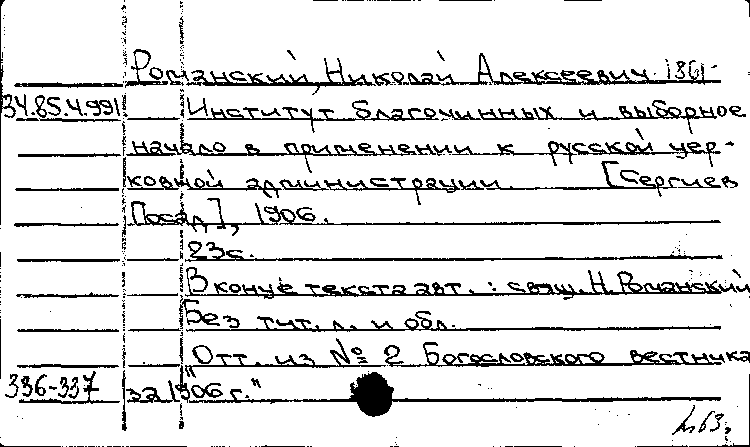 Романский, Николай Алексеевич 1861-
34.85.4.991 Институт благочинных и выборное
начало в применении к русской цер-
ковной администрации. [Сергиев
Посад], 1906.
23с.
В конце текста авт.: свящ. Н. Романский
Без тит. л. и обл.
Отт. из № 2 Богословского вестника
336-337 за 1906 г."